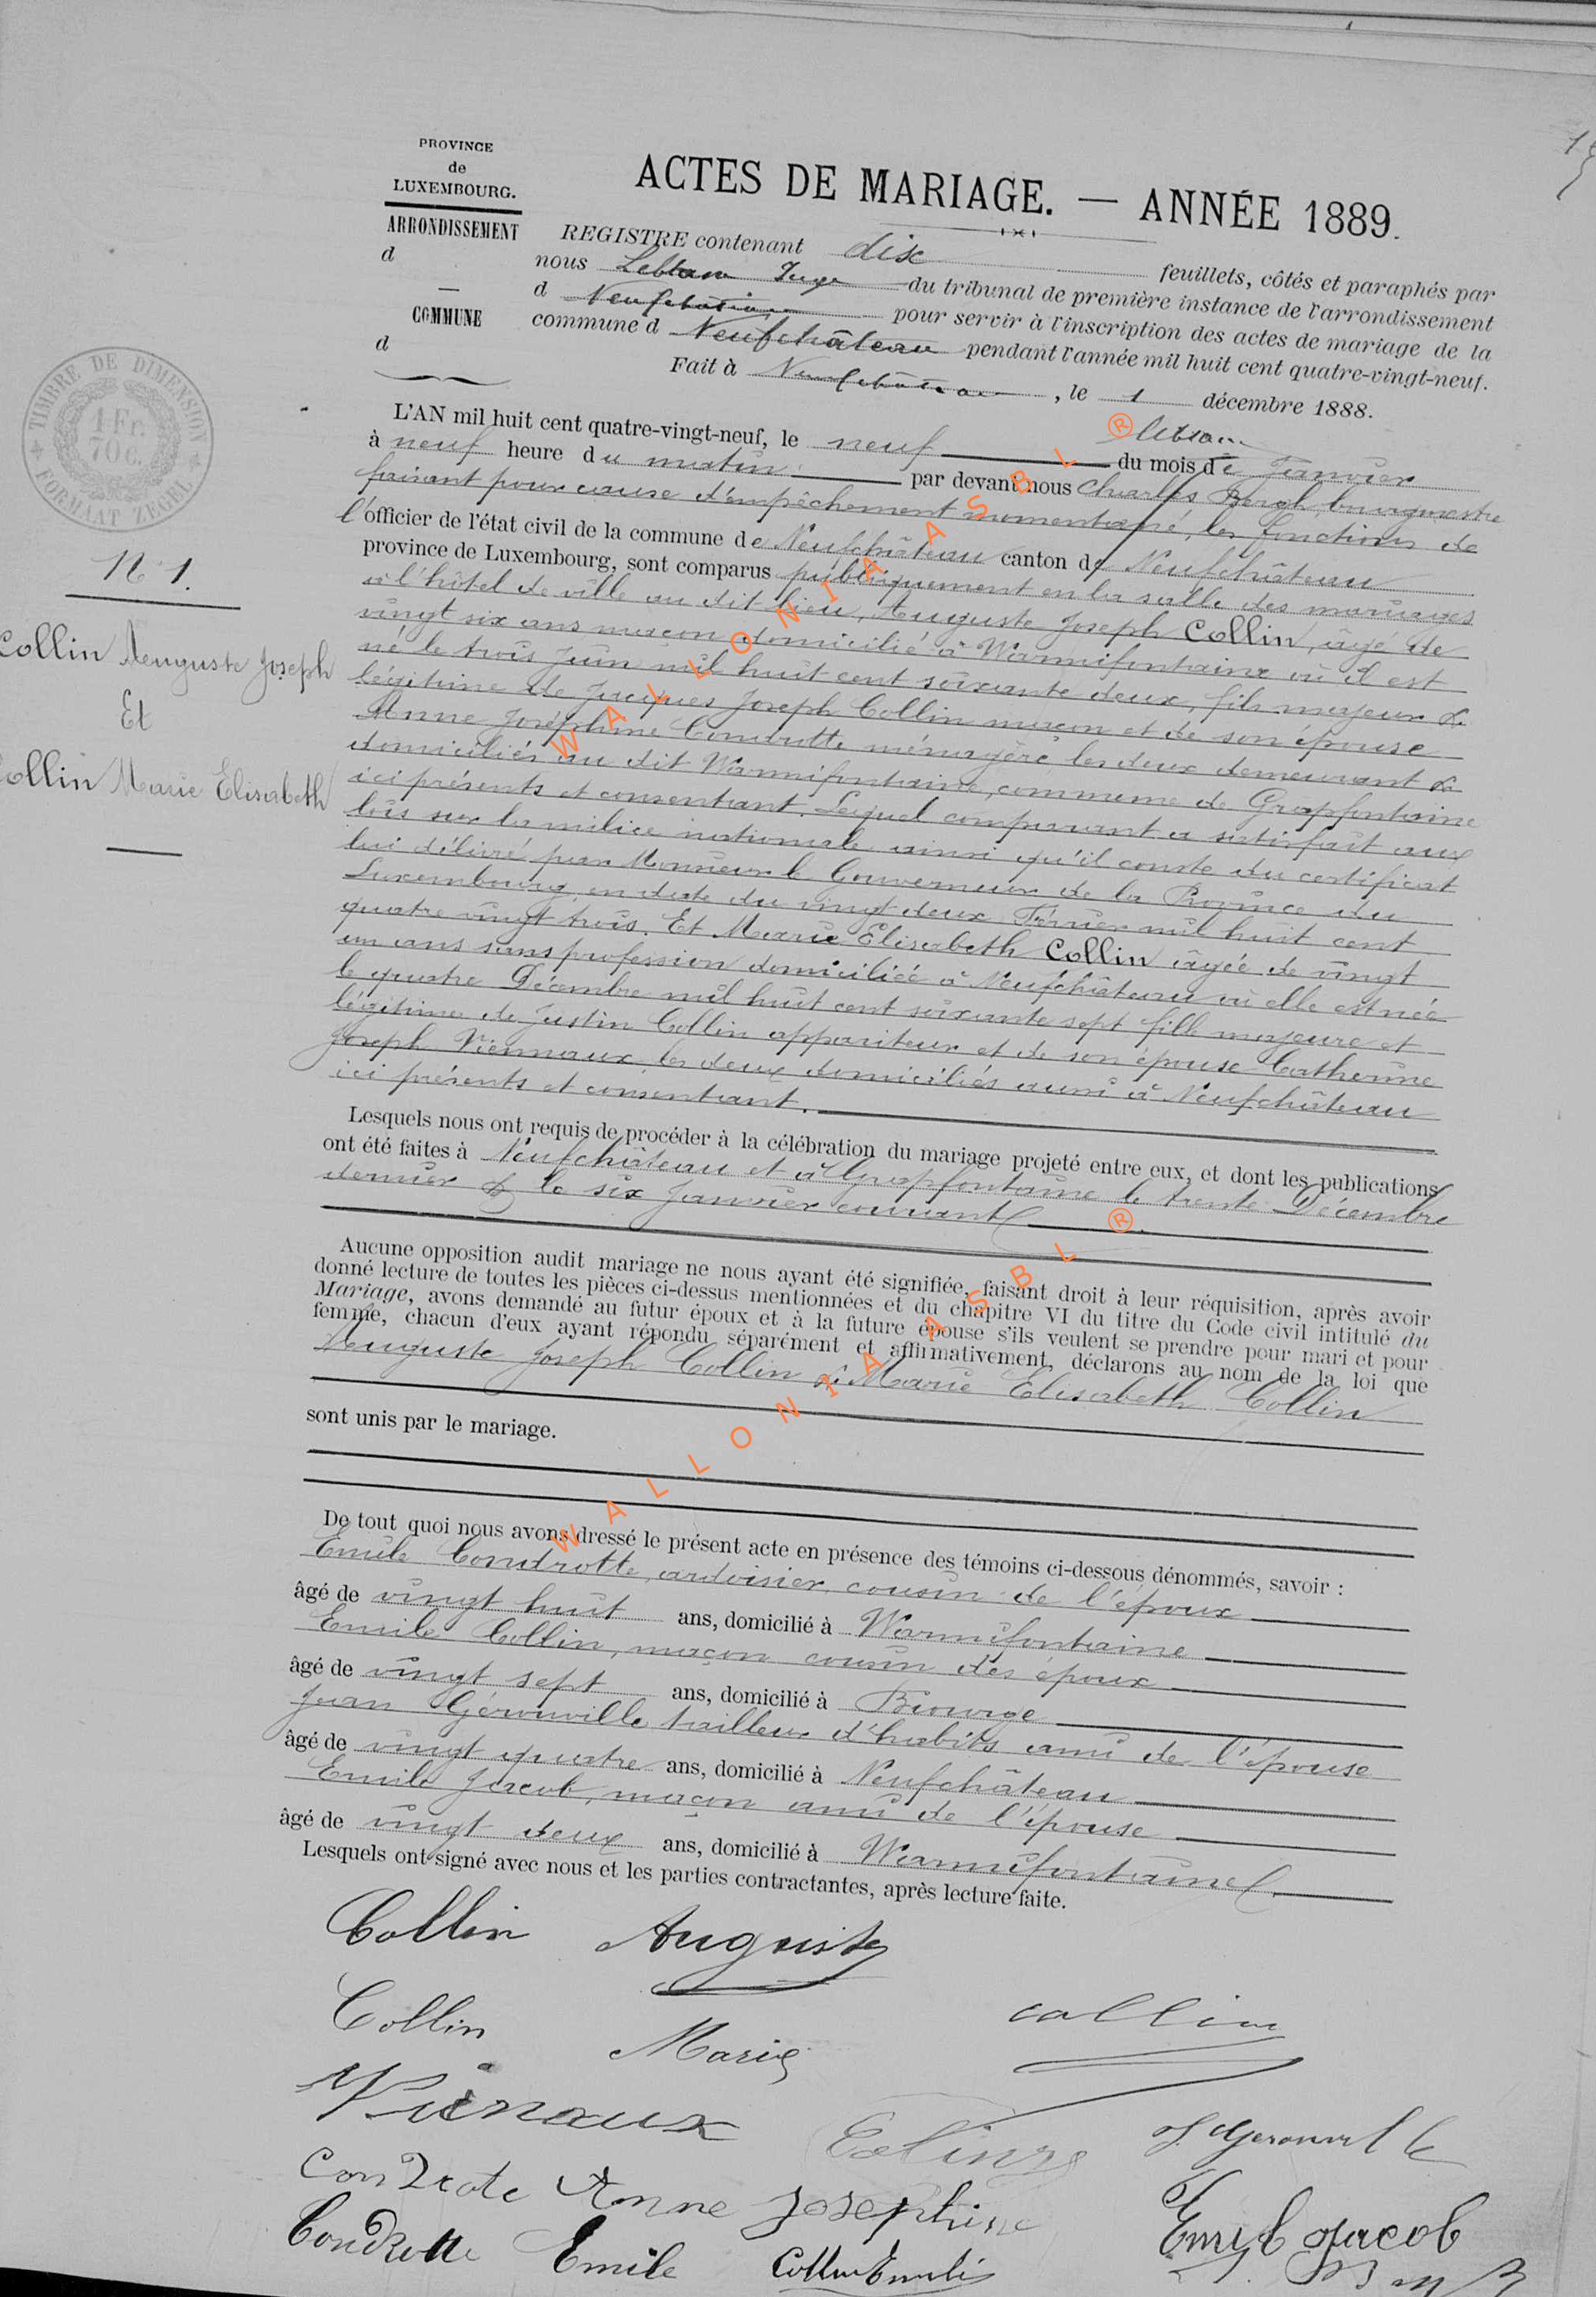 PROVINCE
de
LUXEMBOURG.
ARRONDISSEMENT
d
COMMUNE
d
ACTES DE MARIAGE. — ANNÉE 1889.
REGISTRE contenant dix feuillets, côtés et paraphés par
nous Juge du tribunal de première instance de l'arrondissement
d Neufchateau pour servir à l'inscription des actes de mariage de la
commune d Neufchâteau pendant l'année mil huit cent quatre-vingt-neuf.
Fait à Neufchateau, le 1 décembre 1888.
TIMBRE DE DIMENSION
1 Fr.
70 c.
FORMAAT ZEGEL
N° 1.
Collin Auguste Joseph
Et
Collin Marie Elisabeth
L'AN mil huit cent quatre-vingt-neuf, le neuf du mois de Janvier
à neuf heure du matin par devant nous Charles Bergh, bourgmestre
faisant pour cause d'empêchement momentané, les fonctions de
l'officier de l'état civil de la commune de Neufchâteau canton de Neufchâteau
province de Luxembourg, sont comparus publiquement en la salle des mariages
à l'hôtel de ville au dit lieu, Auguste Joseph Collin, âgé de
vingt six ans maçon domicilié à Warmifontaine où il est
né le trois Juin mil huit cent soixante deux, fils majeur &
légitime de Jacques Joseph Collin maçon et de son épouse
Anne Joséphine Condrotte ménagère, les deux demeurant &
domiciliés au dit Warmifontaine, commune de Grapfontaine
ici présents et consentant. Lequel comparant a satisfait aux
lois sur la milice nationale ainsi qu'il conste du certificat
lui délivré par Monsieur le Gouverneur de la Province du
Luxembourg, en date du vingt deux Février mil huit cent
quatre vingt trois. Et Marie Elisabeth Collin âgée de vingt
un ans sans profession domiciliée à Neufchâteau où elle est née
le quatre Décembre mil huit cent soixante sept fille majeure et
légitime de Justin Collin appariteur et de son épouse Catherine
Joseph Viennaux, les deux domiciliés aussi à Neufchâteau
ici présents et consentant.
Lesquels nous ont requis de procéder à la célébration du mariage projeté entre eux, et dont les publications
ont été faites à Neufchâteau et à Grapfontaine le trente Décembre
dernier & le six Janvier courant
Aucune opposition audit mariage ne nous ayant été signifiée, faisant droit à leur réquisition, après avoir
donné lecture de toutes les pièces ci-dessus mentionnées et du chapitre VI du titre du Code civil intitulé du
Mariage, avons demandé au futur époux et à la future épouse s'ils veulent se prendre pour mari et pour
femme, chacun d'eux ayant répondu séparément et affirmativement, déclarons au nom de la loi que
Auguste Joseph Collin & Marie Elisabeth Collin
sont unis par le mariage.
De tout quoi nous avons dressé le présent acte en présence des témoins ci-dessous dénommés, savoir :
Emile Condrotte, ardoisier, cousin de l'époux
âgé de vingt huit ans, domicilié à Warmifontaine
Emile Collin, maçon cousin des époux
âgé de vingt sept ans, domicilié à Biourge
Jean Gérouville tailleur d'habits ami de l'épouse
âgé de vingt quatre ans, domicilié à Neufchâteau
Emile Jacob, maçon ami de l'épouse
âgé de vingt deux ans, domicilié à Warmifontaine
Lesquels ont signé avec nous et les parties contractantes, après lecture faite.
Collin Auguste
Collin Marie
Collin
Vienaux
J. Gerouville
Condrote Anne Josephine
Emile Jacob
Condrotte Emile
Collin Emile
WALLONIA ASBL ®
WALLONIA ASBL ®